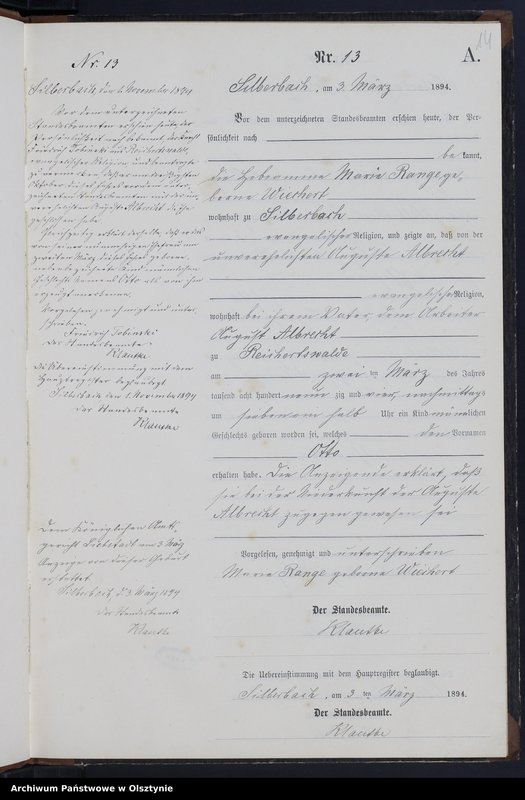 14
Nr. 13
Silberbach den 1. November 1894
Vor dem unterzeichneten
Standesbeamten erschien heute, der
Persönlichkeit nach bekannt, der Knecht
Friedrich Tobinski aus Reichertswalde,
evangelischer Religion, und
Oktober dieses Jahres vor dem unter-
zeichneten Standesbeamten mit der un-
verehelichten Auguste Albrecht die Ehe
geschlossen habe.
Gleichzeitig erklärt derselbe, daß er das
von seiner nunmehrigen Ehefrau am
zweiten März dieses Jahres geborene,
nebenbezeichnete Kind männlichen
Geschlechts Namens Otto als von ihm
erzeugt anerkenne.
Vorgelesen, genehmigt und unter-
schrieben
Friedrich Tobinski
Der Standesbeamte
Klautke
Die Übereinstimmung mit dem
Hauptregister beglaubigt
Silberbach den 1. November 1894
Der Standesbeamte
Klautke
Dem Königlichen Amts-
gericht Liebstadt am 3 März
Anzeige von dieser Geburt
erstattet
Silberbach, d. 3. März 1894
Der Standesbeamte
Klautke
Nr. 13 A.
Silberbach, am 3. März 1894.
Vor dem unterzeichneten Standesbeamten erschien heute, der Per-
sönlichkeit nach
be kannt,
die Hebamme Marie Range ge-
borene Wiechert
wohnhaft zu Silberbach
evangelischer Religion, und zeigte an, daß von der
unverehelichten Auguste Albrecht
evangelischer Religion,
wohnhaft bei ihrem Vater, dem Arbeiter
August Albrecht
zu Reichertswalde
am zwei ten März des Jahres
tausend acht hundert neun zig und vier, nachmittags
um sieben ein halb Uhr ein Kind männlichen
Geschlechts geboren worden sei, welches den Vornamen
Otto
erhalten habe. Die Anzeigende erklärt, daß
sie bei der Niederkunft der Auguste
Albrecht zugegen gewesen sei
Vorgelesen, genehmigt und unterschrieben
Marie Range geborene Wiechert
Der Standesbeamte.
Klautke
Die Uebereinstimmung mit dem Hauptregister beglaubigt.
Silberbach, am 3 ten März 1894.
Der Standesbeamte.
Klautke
Archiwum Państwowe w Olsztynie